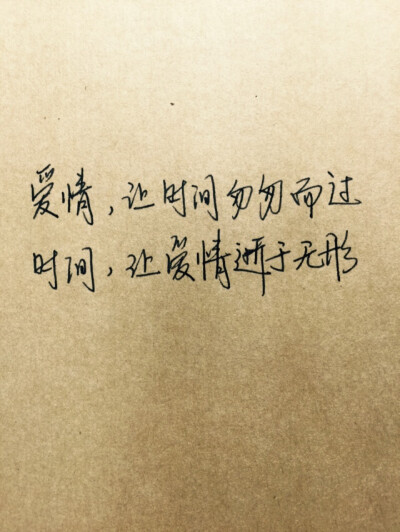 爱情，让时间匆匆而过
时间，让爱情逝于无形